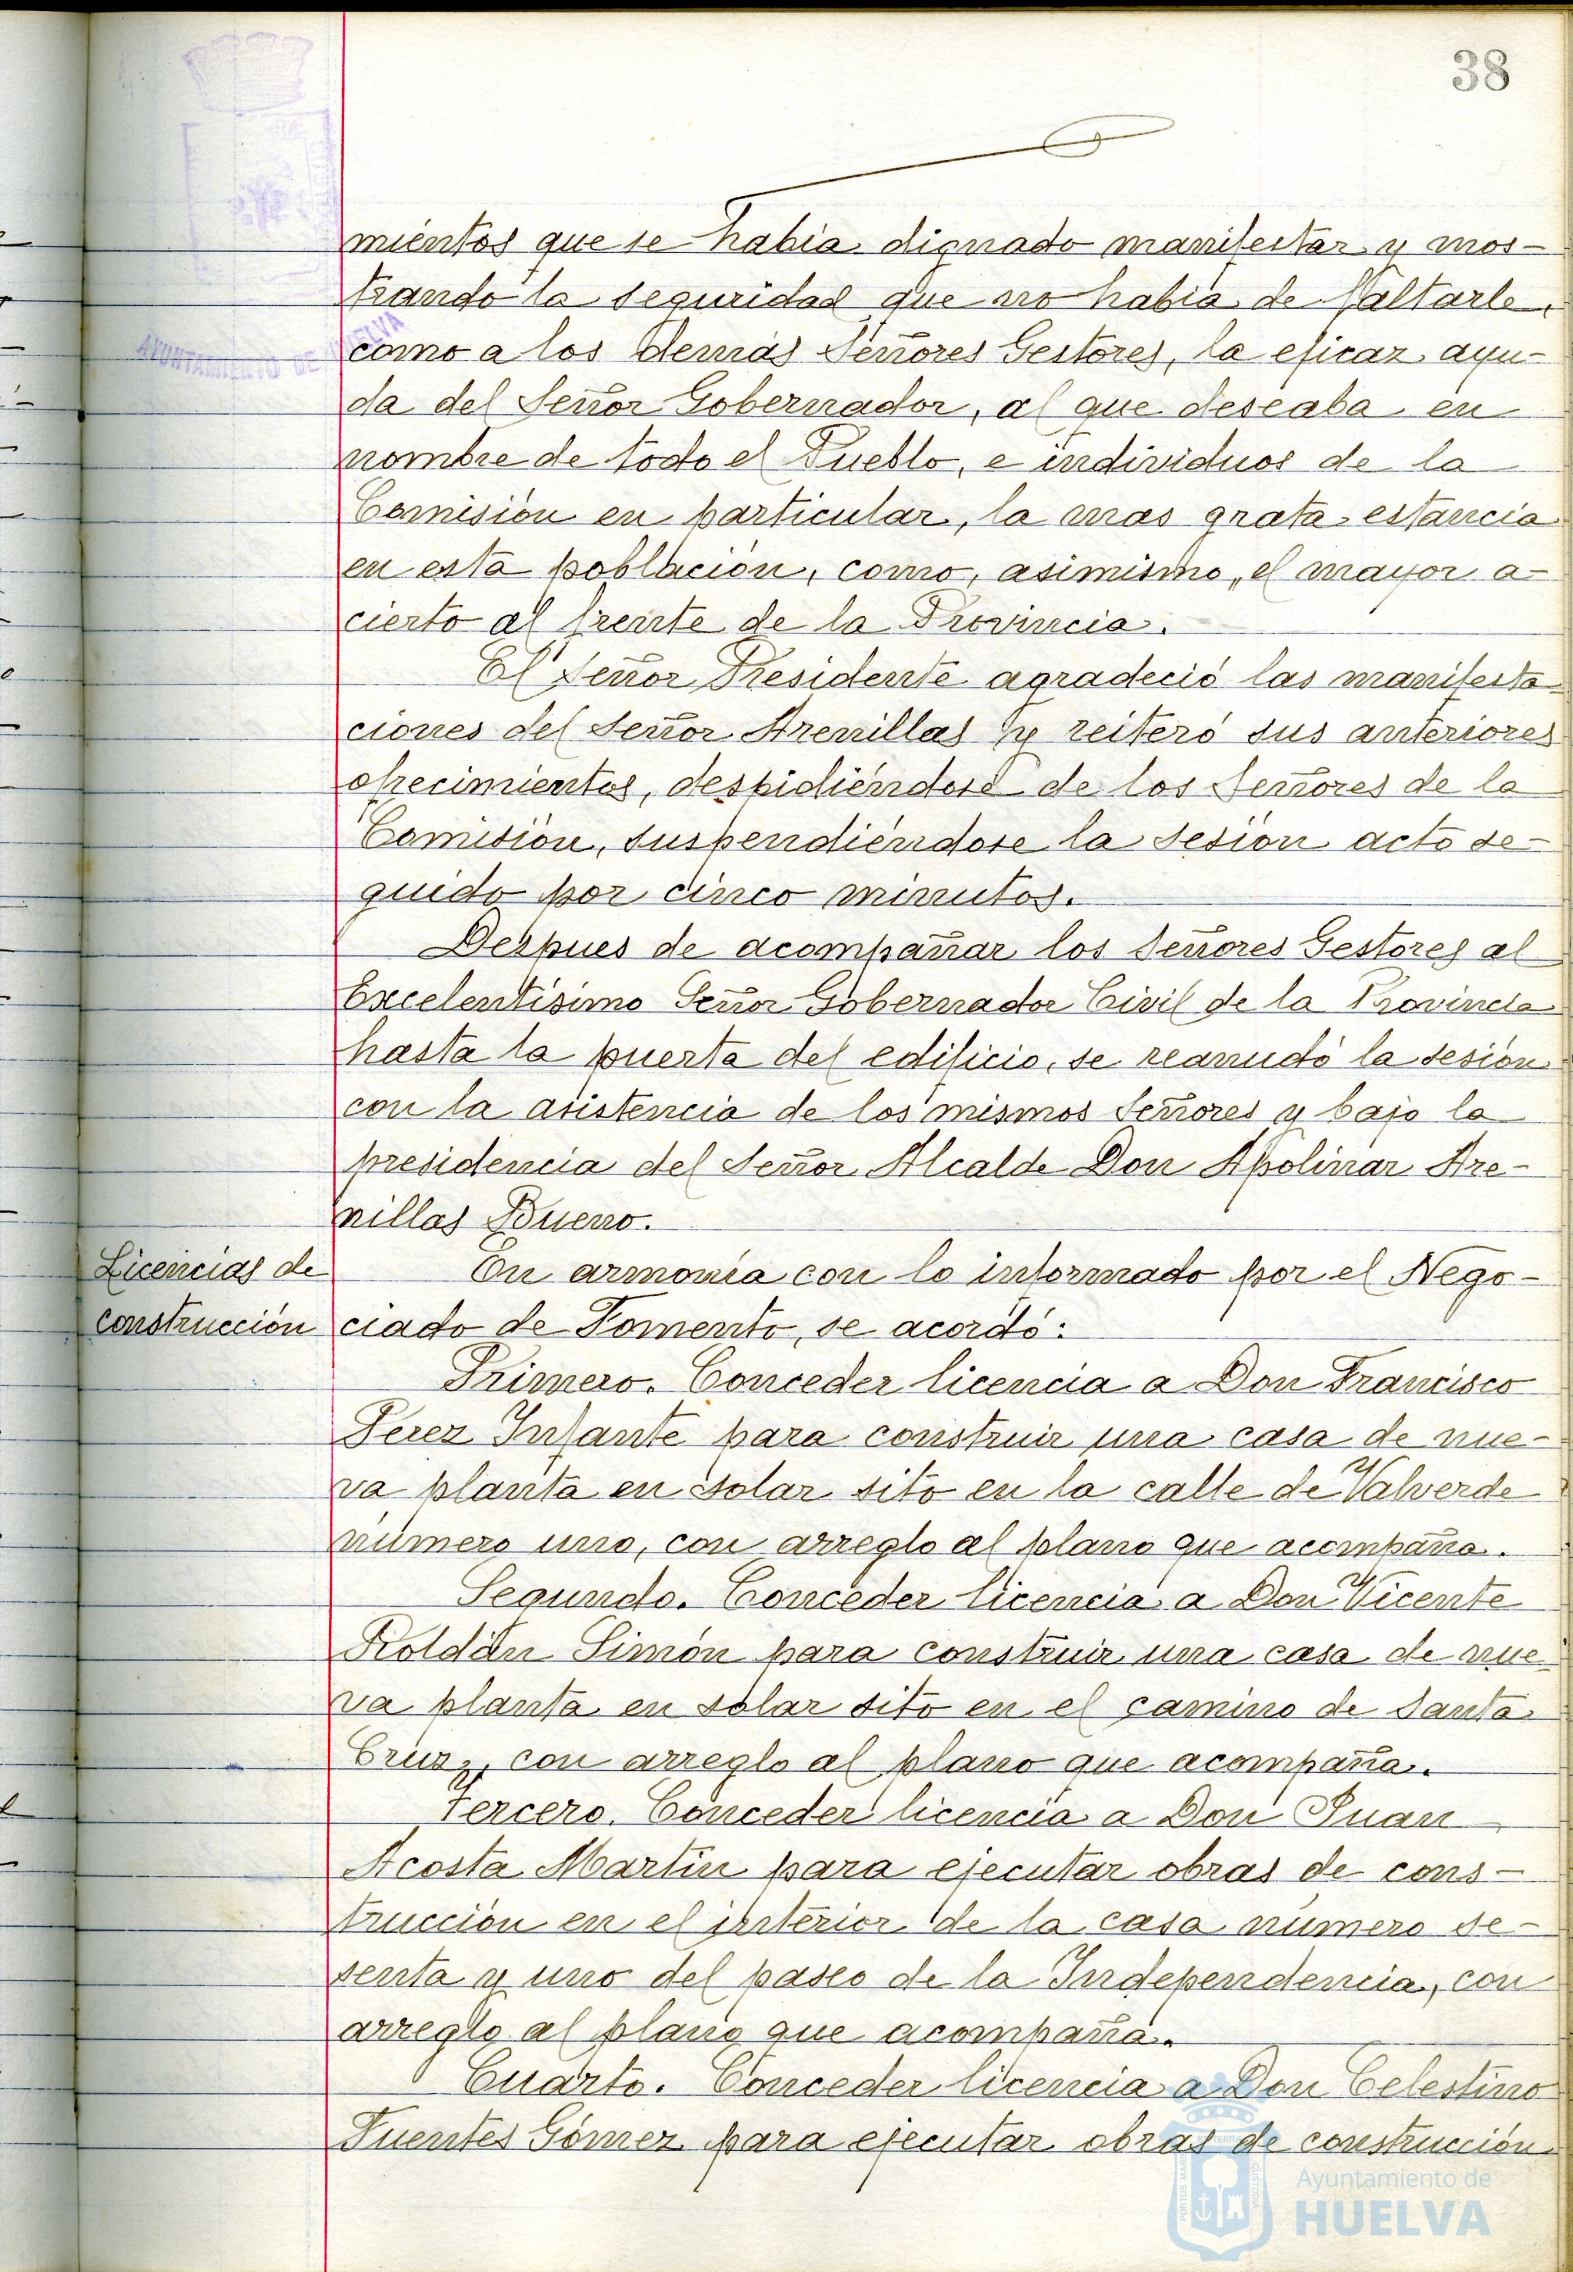 38
mientos que se habia dignado manifestar y mos-
trando la seguridad que no habia de faltarle,
AYUNTAMIENTO DE HUELVA
como a los demás Señores Gestores, la eficaz ayu-
da del Señor Gobernador, al que deseaba en
nombre de todo el Pueblo, e individuos de la
Comisión en particular, la mas grata estancia
en esta población, como, asimismo, el mayor a-
cierto al frente de la Provincia.
El Señor Presidente agradeció las manifesta-
ciones del Señor Arenillas y reiteró sus anteriores
ofrecimientos, despidiéndose de los Señores de la
Comisión, suspendiéndose la sesión acto se-
guido por cinco minutos.
Despues de acompañar los Señores Gestores al
Excelentísimo Señor Gobernador Civil de la Provincia
hasta la puerta del edificio, se reanudó la sesión
con la asistencia de los mismos Señores y bajo la
presidencia del Señor Alcalde Don Apolinar Are-
nillas Bueno.
Licencias de
construcción
En armonía con lo informado por el Nego-
ciado de Fomento, se acordó:
Primero. Conceder licencia a Don Francisco
Pérez Infante para construir una casa de nue-
va planta en solar sito en la calle de Valverde
número uno, con arreglo al plano que acompaña.
Segundo. Conceder licencia a Don Vicente
Roldán Simón para construir una casa de nue-
va planta en solar sito en el camino de Santa
Cruz, con arreglo al plano que acompaña.
Tercero. Conceder licencia a Don Juan
Acosta Martín para ejecutar obras de cons-
trucción en el interior de la casa número se-
senta y uno del paseo de la Independencia, con
arreglo al plano que acompaña.
Cuarto. Conceder licencia a Don Celestino
Fuentes Gómez para ejecutar obras de construcción
Ayuntamiento de
HUELVA